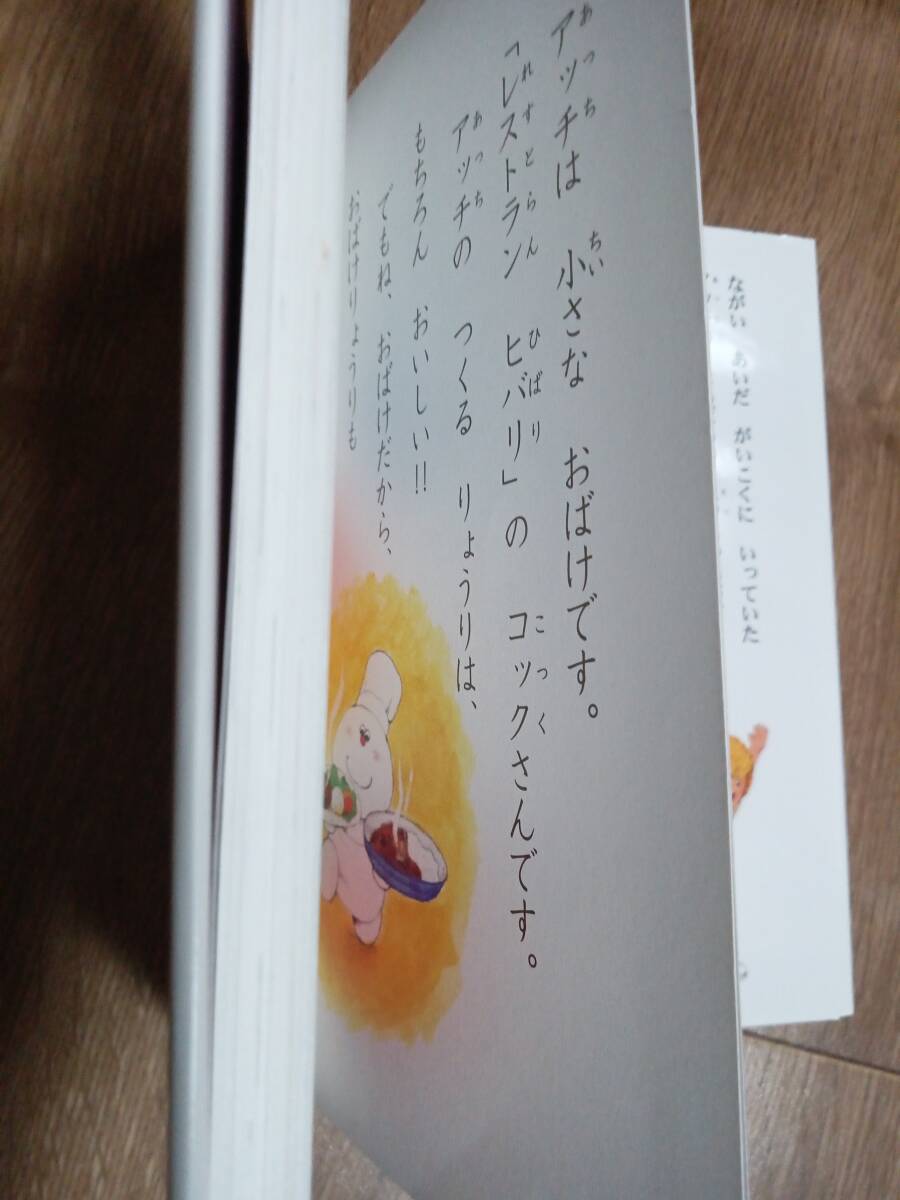 アッチは 小さな おばけです。
「レストラン ヒバリ」の コックさんです。
アッチの つくる りょうりは、
もちろん おいしい!!
でもね、おばけだから、
おばけりょうりも
ながい あいだ がいこくに いっていた